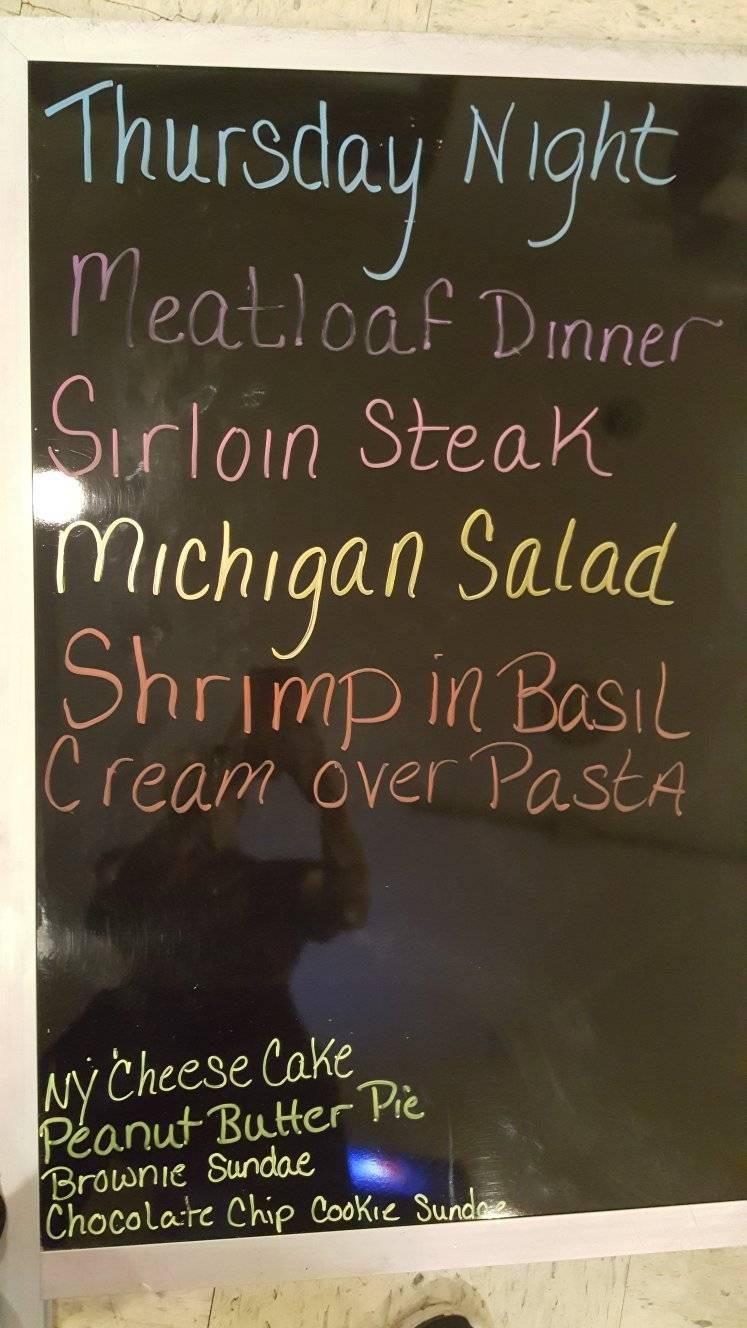 Thursday Night
Meatloaf Dinner
Sirloin Steak
Michigan Salad
Shrimp in Basil
Cream over Pasta
NY Cheese Cake
Peanut Butter Pie
Brownie Sundae
Chocolate Chip Cookie Sundae